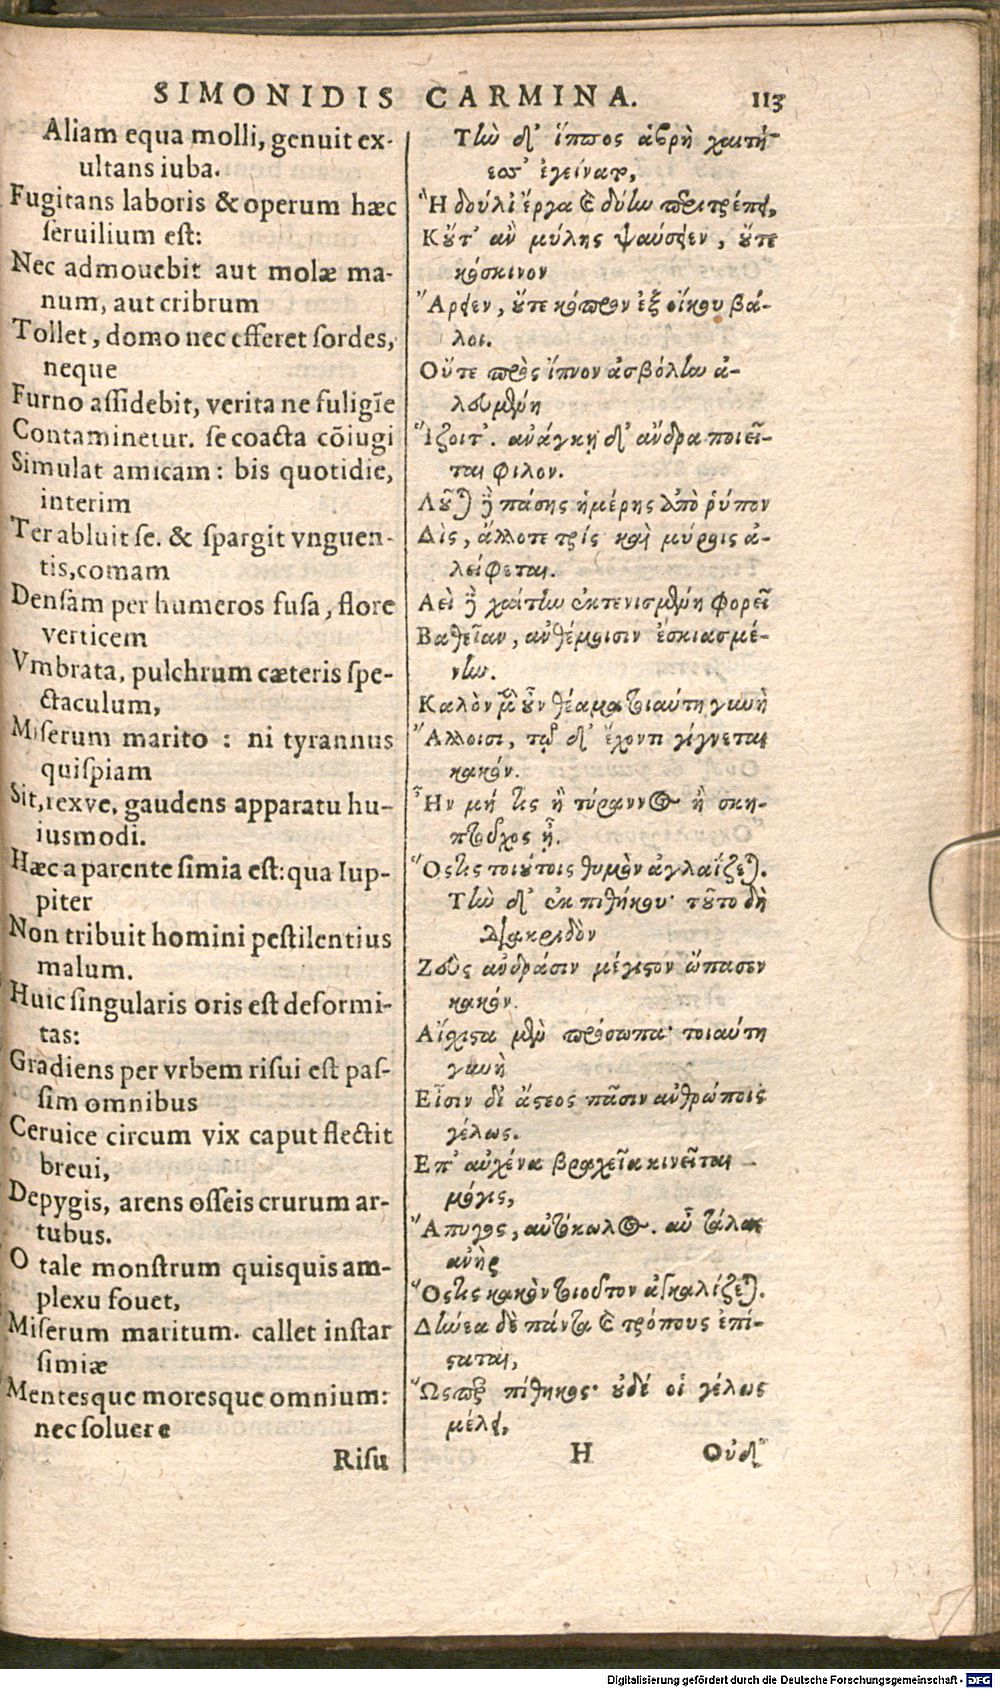 SIMONIDIS CARMINA. 113
Aliam equa molli, genuit ex-
ultans iuba.
Fugitans laboris & operum hæc
ſeruilium eſt:
Nec admouebit aut molæ ma-
num, aut cribrum
Tollet, domo nec efferet ſordes,
neque
Furno aſſidebit, verita ne fuligīe
Contaminetur. ſe coacta cōiugi
Simulat amicam: bis quotidie,
interim
Ter abluit ſe. & ſpargit vnguen-
tis, comam
Denſam per humeros fuſa, flore
verticem
Vmbrata, pulchrum cæteris ſpe-
ctaculum,
Miſerum marito : ni tyrannus
quiſpiam
Sit, rexve, gaudens apparatu hu-
iusmodi.
Hæc a parente ſimia eſt: qua Iup-
piter
Non tribuit homini peſtilentius
malum.
Huic ſingularis oris eſt deformi-
tas:
Gradiens per vrbem riſui eſt paſ-
ſim omnibus
Ceruice circum vix caput flectit
breui,
Depygis, arens oſſeis crurum ar-
tubus.
O tale monſtrum quisquis am-
plexu fouet,
Miſerum maritum. callet inſtar
ſimiæ
Mentesque moresque omnium:
nec ſoluere
Riſu
Τὴν δ' ἵππος ἁβρὴ χαιτή-
εσσ' ἐγείνατο,
Ἣ δούλι' ἔργα καὶ δύην περιτρέπει,
Κοὔτ' ἂν μύλης ψαύσειεν, οὔτε
κόσκινον
Ἄρειεν, οὔτε κόπρον ἐξ οἴκου βά-
λοι.
Οὔτε πρὸς ἵπνον ἀσβόλην ἀ-
λευμένη
Ἵζοιτ'. ἀνάγκῃ δ' ἄνδρα ποιεῖ-
ται φιλον.
Λοῦται δὲ πάσης ἡμέρης ἀπὸ ῥύπον
Δὶς, ἄλλοτε τρίς καὶ μύροις ἀ-
λείφεται.
Αεὶ δὲ χαίτην ἐκτενισμένη φορεῖ
Βαθεῖαν, ἀνθέμοισιν ἐσκιασμέ-
νην.
Καλὸν μὲν οὖν θέαμα τοιαύτη γυνὴ
Ἄλλοισι, τῷ δ' ἔχοντι γίγνεται
κακόν.
Ἢν μή τις ἢ τύραννος ἢ σκη-
πτοῦχος ᾖ.
Ὅστις τοιούτοις θυμὸν ἀγλαΐζεται.
Τὴν δ' ἐκ πιθήκου· τοῦτο δὴ
διακριδὸν
Ζεὺς ἀνδράσιν μέγιστον ὤπασεν
κακόν.
Αἴσχιστα μὲν πρόσωπα· τοιαύτη
γυνὴ
Εἶσιν δι' ἄστεος πᾶσιν ἀνθρώποις
γέλως.
Επ' αὐχένα βραχεῖα κινεῖται
μόγις,
Ἄπυγος, αὐτόκωλος. ἆ τάλας
ἀνὴρ
Ὅστις κακὸν τοιοῦτον ἀγκαλίζεται.
Δήνεα δὲ πάντα καὶ τρόπους ἐπί-
σταται,
Ὥσπερ πίθηκος· οὐδέ οἱ γέλως
μέλει,
H Οὐδ'
Digitalisierung gefördert durch die Deutsche Forschungsgemeinschaft - DFG